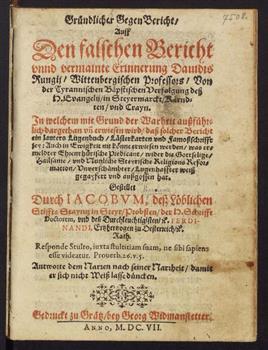 7508.
Gründlicher GegenBericht/
Auff
Den falschen Bericht
vnnd vermainte Erinnerung Dauidis
Rungij/ Wittenbergischen Professors/ Von
der Tyrannischen Bäpstischen Verfolgung deß
H. Euangelij/ in Steyermarckt/ Kärndten/
vnd Crayn.
In welchem mit Grund der Warheit außführlich
dargethan vñ erwisen wird/ daß solcher Bericht
ein lautters Lugenbuch/ Lästerkarten vnd Famosschrifft
sey: Auch in Ewigkeit nit könne erwisen werden/ was er
wider die Gottselige/
Hailsame/ vnd Religions Reformation/
Gestellet
Durch IACOBVM, deß Löblichen
Stiffts Stayntz in Steyr/ Probsten/ der H. Schrifft
Doctorem, vnd des Durchleuchtigisten FERDINANDI,
Ertzhertzogen zu Oesterreich/
Rath.
Responde Stulto, iuxta stultitiam suam, ne sibi sapiens
esse videatur. Prouerb. 26. v. 5.
Antworte dem Narren nach seiner Narrheit/ damit
er sich nicht Weiß lasse duncken.
Gedruckt zu Grätz/ bey Georg Widmanstetter.
ANNO, M. DC. VII.